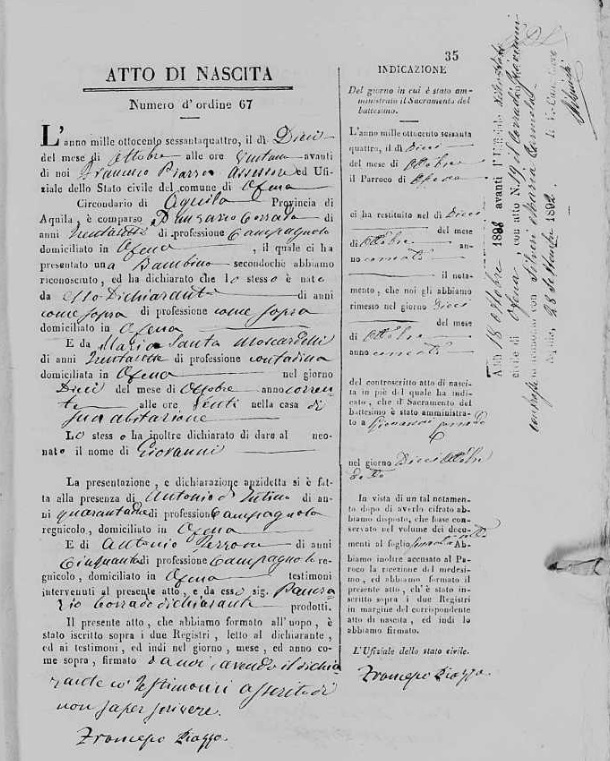 35
ATTO DI NASCITA
Numero d'ordine 67
L'anno mille ottocento sessantaquattro, il dì Dieci
del mese di Ottobre alle ore avanti
di noi Francesco Piazza Assessore ed Ufi-
ziale dello Stato civile del comune di Ofena
Circondario di Aquila Provincia di
Aquila, è comparso Corrado di
anni di professione Campagnolo
domiciliato in Ofena, il quale ci ha
presentato una Bambino secondochè abbiamo
riconosciuto, ed ha dichiarato che lo stesso è nato
da esso Dichiarante di anni
come sopra di professione come sopra
domiciliato in Ofena
E da Maria Santa Moscardelli
di anni di professione contadina
domiciliata in Ofena nel giorno
Dieci del mese di Ottobre anno corren-
te alle ore Venti nella casa di
sua abitazione
Lo stesso ha inoltre dichiarato di dare al neo-
nato il nome di Giovanni
La presentazione, e dichiarazione anzidetta si è fat-
ta alla presenza di Antonio d'Intino di an-
ni quaranta di professione Campagnolo
regnicolo, domiciliato in Ofena
E di Antonio di anni
Cinquanta di professione Campagnolo re-
gnicolo, domiciliato in Ofena testimoni
intervenuti al presente atto, e da esso sig. Panora
zio Corrado dichiarante prodotti.
Il presente atto, che abbiamo formato all'uopo, è
stato iscritto sopra i due Registri, letto al dichiarante,
ed ai testimoni, ed indi nel giorno, mese, ed anno co-
me sopra, firmato da noi, avendo il dichia
rante e testimoni asserito di
non saper scrivere.
Francesco Piazza.
INDICAZIONE
Del giorno in cui è stato am-
ministrato il Sacramento del
battesimo.
L'anno mille ottocento sessanta
quattro, il dì Dieci
del mese di Ottobre
il Parroco di Ofena
ci ha restituito nel dì Dieci
del mese
di Ottobre an-
no corrente
il nota-
mento, che noi gli abbiamo
rimesso nel giorno Dieci
del mese
di Ottobre
anno corrente
del controscritto atto di nasci-
ta in piè del quale ha indi-
cato, che il Sacramento del
battesimo è stato amministra-
to a Giovanni Corrado
nel giorno Dieci Ottobre
detto
In vista di un tal notamento
dopo di averlo cifrato abbia-
mo disposto, che fosse con-
servato nel volume dei docu-
menti al foglio Ab-
biamo inoltre accusato al Pa-
roco la ricezione del medesi-
mo, ed abbiamo formato il
presente atto, ch'è stato in-
scritto sopra i due Registri
in margine del corrispondente
atto di nascita, ed indi lo
abbiamo firmato.
L'Ufiziale dello stato civile.
Francesco Piazza.
Addì 18 ottobre 1888 avanti l'Ufficiale dello Stato
civile di Ofena, con atto N. 19 il Corrado Giovanni
matrimonio con Silveri Maria Carmela
Aquila, 28
Il V. Cancelliere